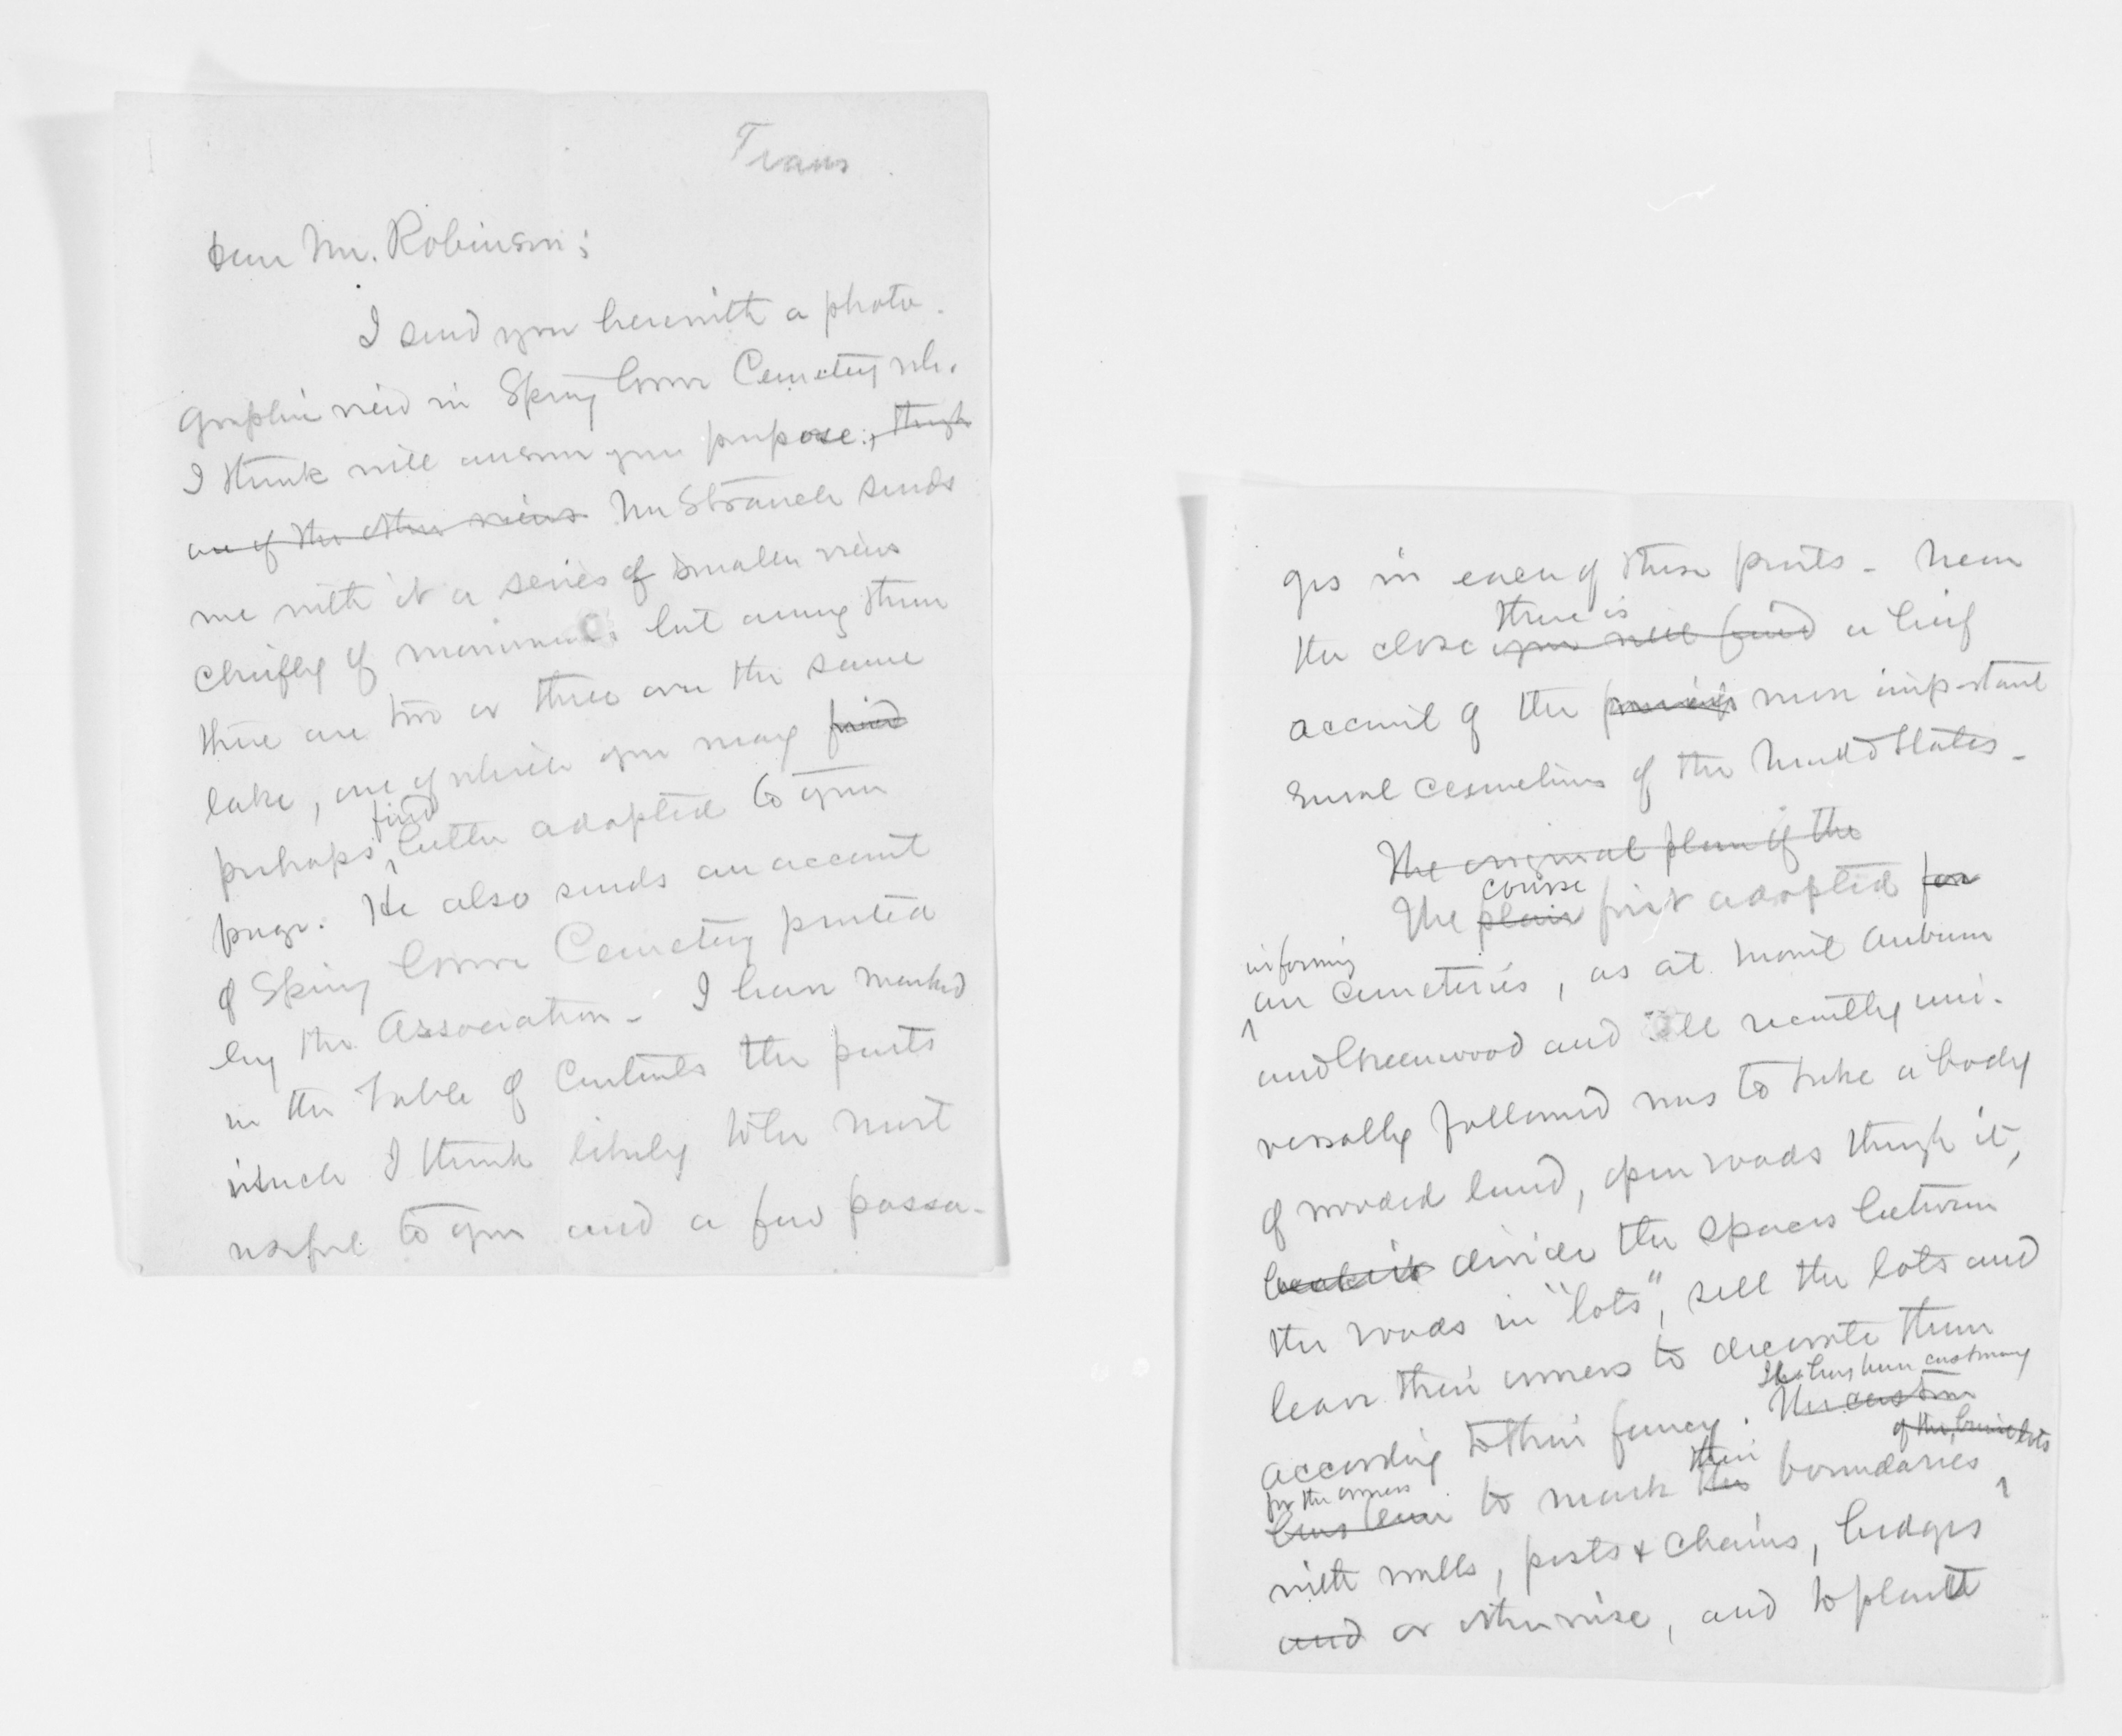 Trans
Dear Mr. Robinson;
I send you herewith a photo-
graphic view in Spring Grove Cemetery wh.
I think will answer your purpose; though
one of the other views Mr Strauch sends
me with it a series of smaller views
chiefly of monuments but among them
there are two or three over the same
lake, one of which you may find
find
perhaps better adapted to your
page. He also sends an account
of Spring Grove Cemetery printed
by the Association - I have marked
in the Table of Contents the parts
which I think likely to be most
useful to you and a few passa-
ges in each of these parts - Near
there is
the close you will find a brief
account of the more important
rural cemeteries of the United States -
The original plan of the
course
The plan first adopted for
in forming
our cemeteries, as at Mount Auburn
and Greenwood and till recently uni-
versally followed was to take a body
of wooded land, open roads through it,
break it divide the spaces between
the roads in "lots", sell the lots and
leave their owners to decorate them
It has been customary
according to their fancy. The custom
of the burial lots
their
for the owners
has been to mark the boundaries
with walls, posts & chains, hedges
and or otherwise, and to plant